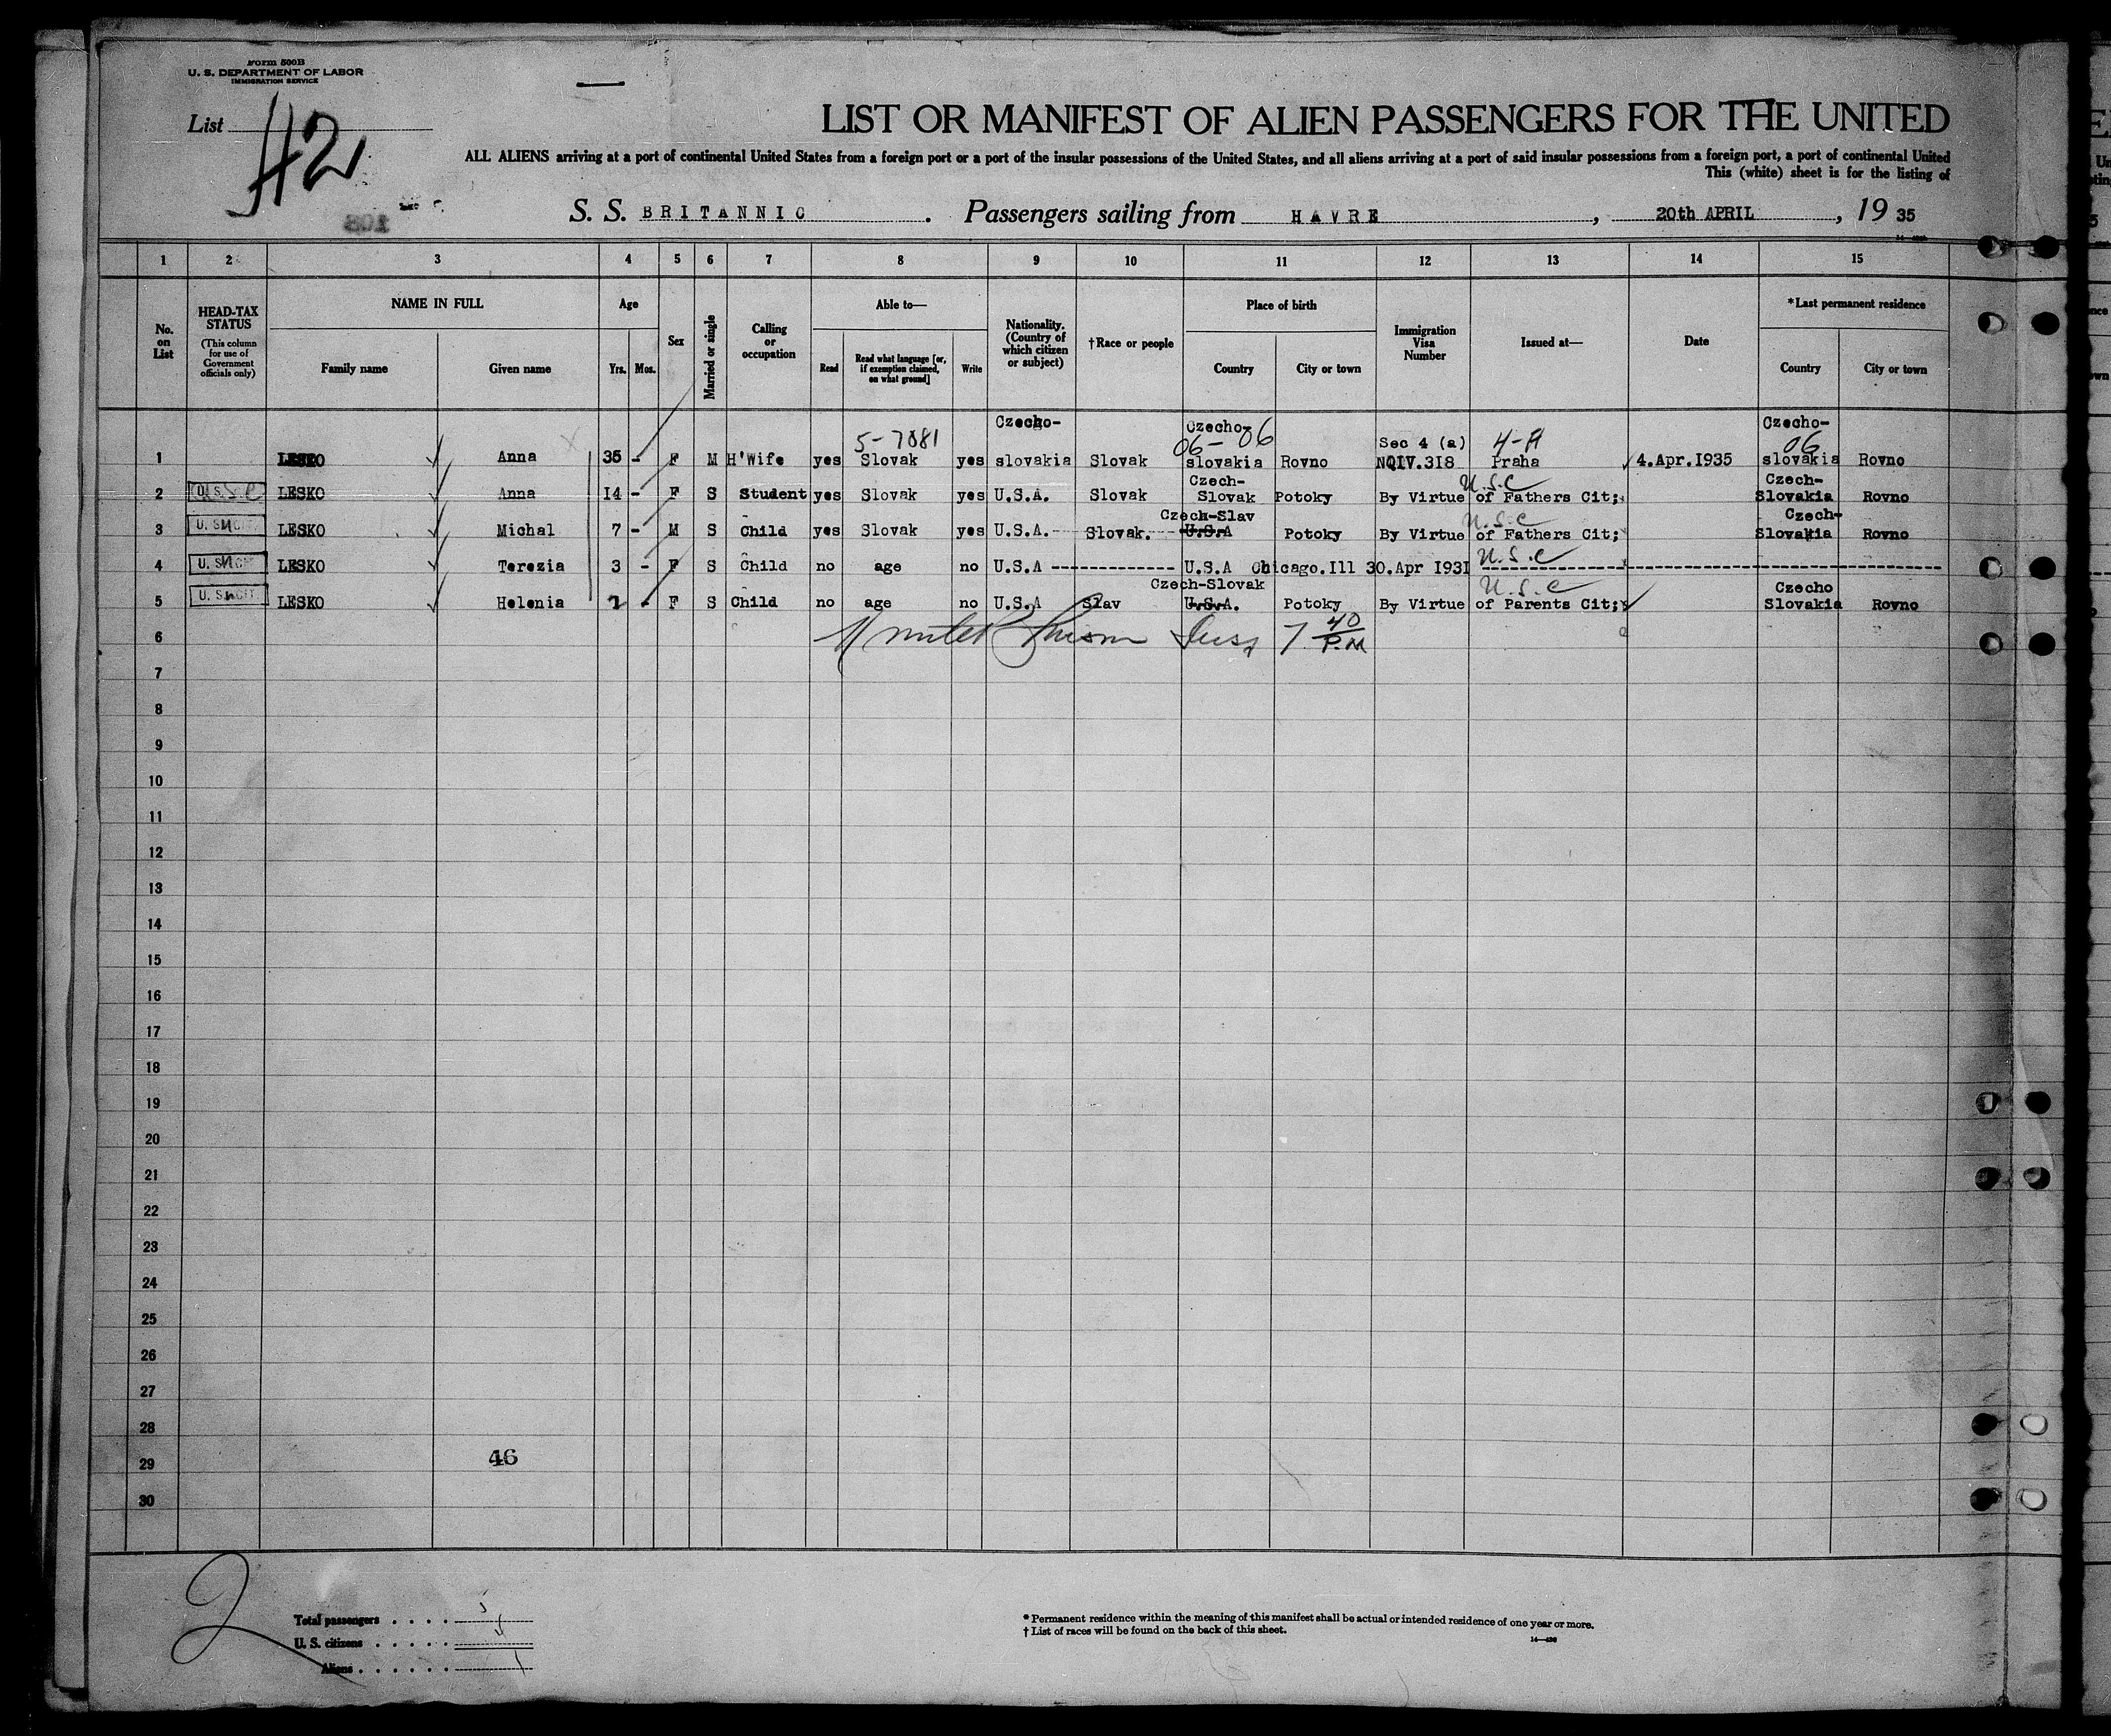 Form 500B
U. S. DEPARTMENT OF LABOR
IMMIGRATION SERVICE
List 42
LIST OR MANIFEST OF ALIEN PASSENGERS FOR THE UNITED
ALL ALIENS arriving at a port of continental United States from a foreign port or a port of the insular possessions of the United States, and all aliens arriving at a port of said insular possessions from a foreign port, a port of continental United
This (white) sheet is for the listing of
S. S. BRITANNIC. Passengers sailing from HAVRE, 20th APRIL, 19 35
1 2 3 4 5 6 7 8 9 10 11 12 13 14 15
No. on List
HEAD-TAX STATUS
(This column for use of Government officials only)
NAME IN FULL
Family name Given name
Age
Yrs. Mos.
Sex
Married or single
Calling or occupation
Able to—
Read Read what language [or, if exemption claimed, on what ground] Write
Nationality. (Country of which citizen or subject)
†Race or people
Place of birth
Country City or town
Immigration Visa Number
Issued at—
Date
*Last permanent residence
Country City or town
Czecho- Czecho- Czecho-
5-7081 06-06 Sec 4 (a) 4-A 06
1 LESKO Anna 35 - F M H'Wife yes Slovak yes slovakia Slovak slovakia Rovno NQIV.318 Praha 4.Apr.1935 slovakia Rovno
Czech- U.S.C Czech-
2 U.S.C LESKO Anna 14 - F S Student yes Slovak yes U.S.A. Slovak Slovak Potoky By Virtue of Fathers Cit; Slovakia Rovno
Czech-Slav U.S.C Czech-
3 U. S. CIT. LESKO Michal 7 - M S Child yes Slovak yes U.S.A. Slovak. U.S.A Potoky By Virtue of Fathers Cit; Slovakia Rovno
4 U. S. CIT. LESKO Terezia 3 - F S Child no age no U.S.A ------------ U.S.A Chicago.Ill 30.Apr 1931 U.S.C
Czech-Slovak U.S.C Czecho
5 U. S. CIT. LESKO Helenia 2 - F S Child no age no U.S.A Slav U.S.A. Potoky By Virtue of Parents Cit; Slovakia Rovno
6 7 40 P.M
7
8
9
10
11
12
13
14
15
16
17
18
19
20
21
22
23
24
25
26
27
28
29 46
30
2
Total passengers . . . . 5
U. S. citizens . . . . . 4
Aliens . . . . . . 1
* Permanent residence within the meaning of this manifest shall be actual or intended residence of one year or more.
† List of races will be found on the back of this sheet.